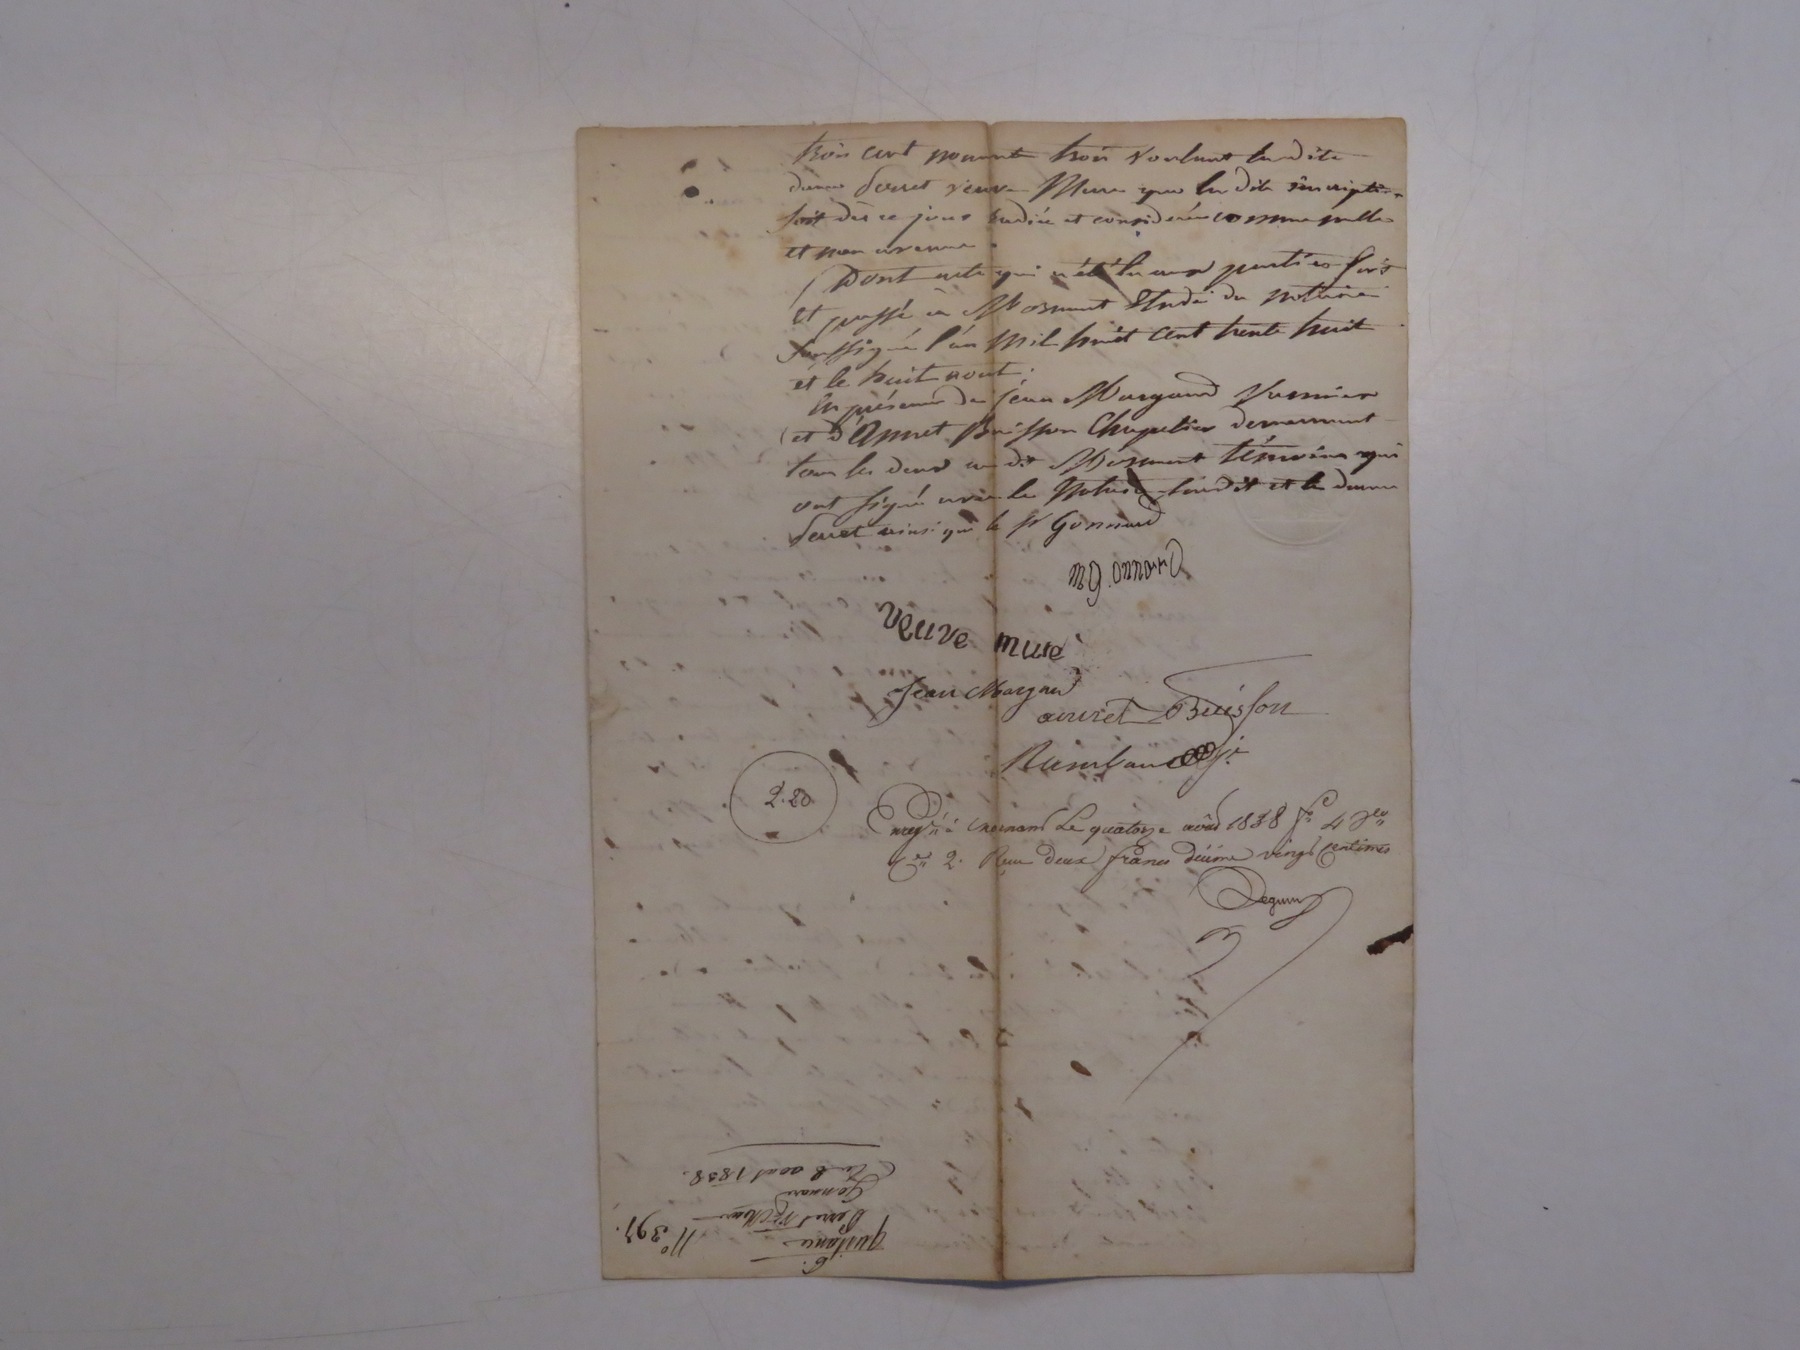 trois cent nonante trois voulant la dite
dame Serret veuve Mure que la dite inscription
soit dès ce jour radiée et considerée comme nulle
et non avenue
Dont acte qui a été lu aux parties fait
et passé à Mornant Etude du notaire
soussigné l'an mil huit cent trente huit
et le huit aout.
En présence de Jean Margand
et d'Annet Buisson Chapelier demeurant
tous les deux au dit Mornant témoins qui
ont signé avec le Notaire la dite dame
Serret ainsi que le sr Gonnard
Gonnard
veuve mure
Jean Margand
annet Buisson
2.20
Enregté à Mornant Le quatorze août 1838 fo 4 Vo
Ce 2. Reçu deux francs décime vingt centimes
quittance
Serret Ve Mure
Gonnard
Du 8 aout 1838.
No 397.